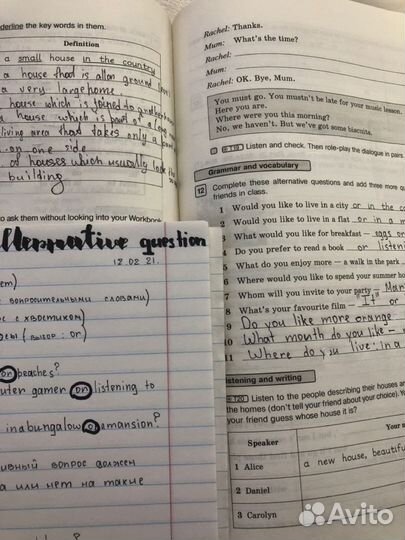 derline the key words in them.
Definition
a small house in the country
a house that is all on ground
a very large home
house which is joined to another
a house which is part of a
living area that takes only a
on one side
of houses which usually look the
building
to ask them without looking into your Workbook.
Rachel: Thanks.
Mum: What's the time?
Rachel:
Mum:
Rachel: OK. Bye, Mum.
You must go. You mustn't be late for your music lesson.
Here you are.
Where were you this morning?
No, we haven't. But we've got some biscuits.
Listen and check. Then role-play the dialogue in pairs.
Grammar and vocabulary
12 Complete these alternative questions and add three more
friends in class.
1 Would you like to live in a city or in the
2 Would you like to live in a flat or in a
3 What would you like for breakfast – eggs or
4 Do you prefer to read a book or listen
5 What do you enjoy more – a walk in the park
6 Where would you like to spend your summer
7 Whom will you invite to your party –
8 What's your favourite film – "It" or
9 Do you like more orange
10 What mouth do you like –
11 Where do you live: in a
Listening and writing
120 Listen to the people describing their houses an
the homes (don't tell your friend about your choice). Y
your friend guess whose house it is?
Speaker
Your
1 Alice
a new house, beautifu
2 Daniel
3 Carolyn
Alternative question
12.02.21.
вопросительными словами)
с хвостиком)
(выбор: or)
or peaches?
uter games or listening to
in a bungalow or a mansion?
ивный вопрос должен
а или нет на такие
Avito